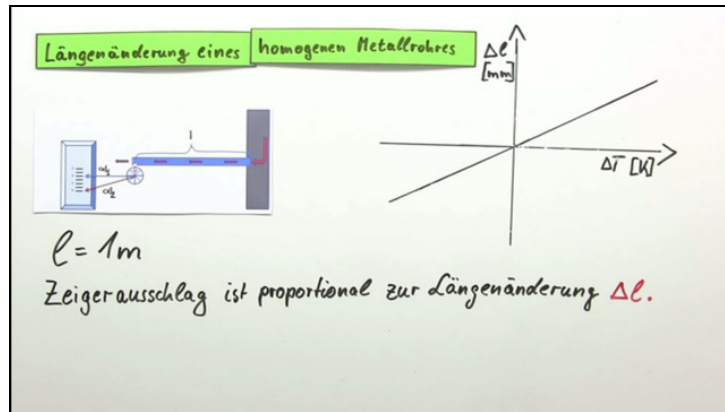 Längenänderung eines homogenen Metallrohres
Δl
[mm]
ΔT [K]
l
α1
α2
l = 1m
Zeigerausschlag ist proportional zur Längenänderung Δl.